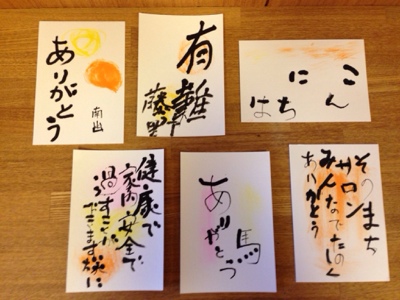 ありがとう
有難
こんにちは
健康で
家内安全で
ます様に
ありがとう
馬
そのまち
サロン
みんなでたのしく
ありがとう